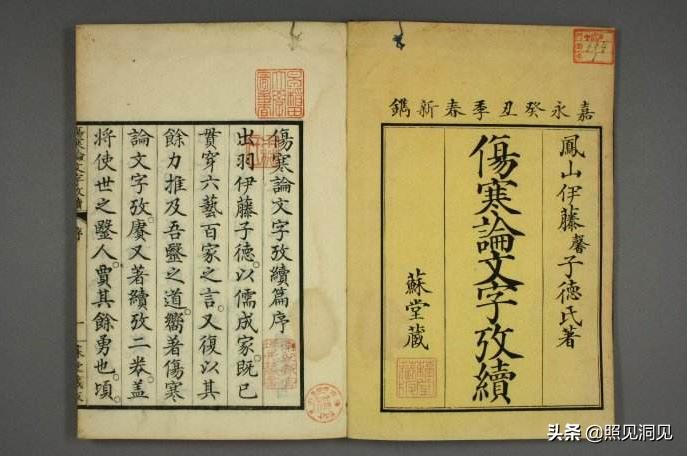 嘉永癸丑季春新鐫
鳳山伊藤馨子德氏著
傷寒論文字攷續
蘇堂藏
傷寒論文字攷續篇序
出羽伊藤子德以儒成家。既已
貫穿六藝百家之言。又復以其
餘力推及吾毉之道。嚮著傷寒
論文字攷。賡又著續攷二卷。蓋
將使世之毉人。賈其餘勇也。頃
頭条 @照见洞见